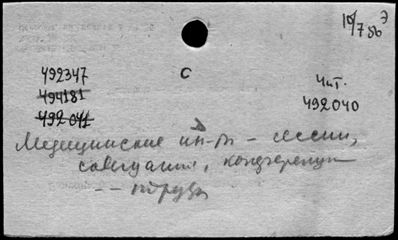 10/7 86 Э
492347
С
494181
Чит.
492041
492040
Медицинские ин-ты – сессии,
совещания, конференции
– – труды